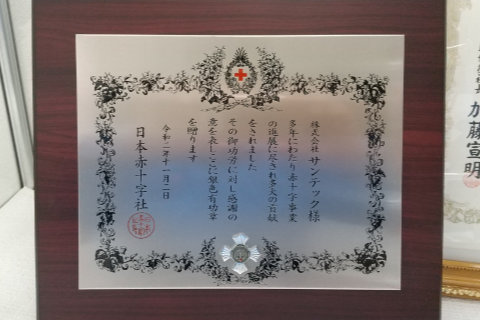 株式会社 サンテック 様
多年にわたり赤十字事業
の進展に尽され多大の貢献
をされました
その御功労に対し感謝の
意を表しここに銀色有功章
を贈ります
令和二年十一月二日
日本赤十字社
加藤宣明